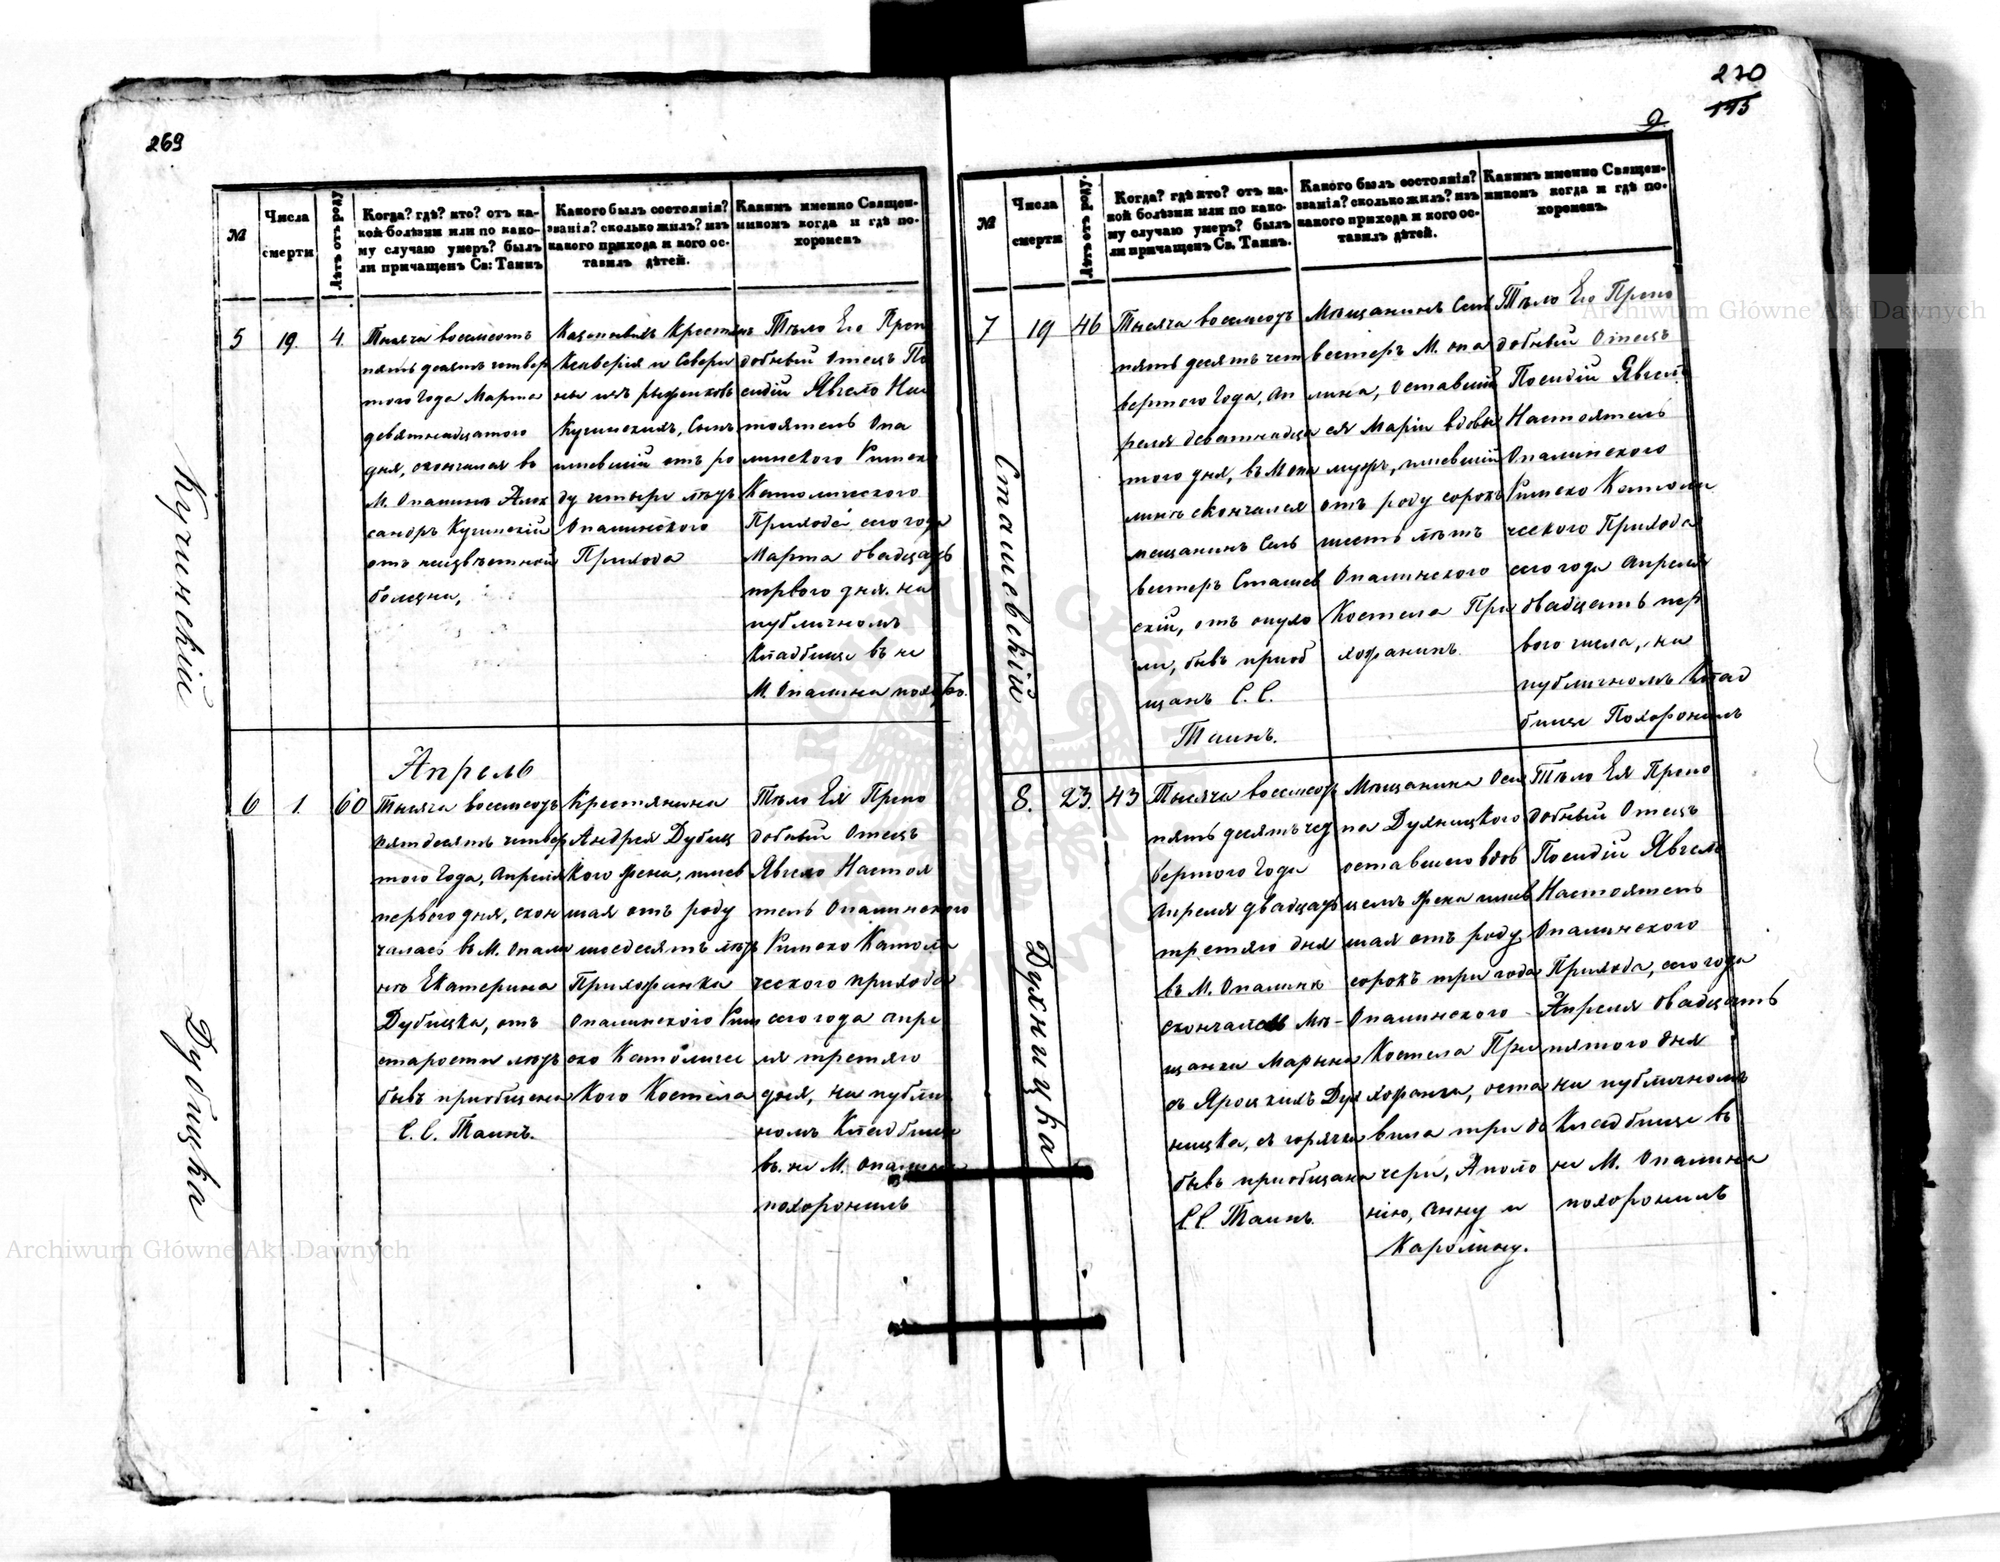 269
№
Числа
смерти
Лѣтъ отъ роду
Когда? гдѣ? кто? отъ ка-
кой болѣзни или по како-
му случаю умеръ? былъ
ли причащенъ Св: Таинъ
Какого былъ состоянія?
званія? сколько жилъ? изъ
какого прихода и кого ос-
тавилъ дѣтей.
Какимъ именно Священ-
никомъ когда и гдѣ по-
хороненъ
Кучинскій
5
19.
4.
Тысяча восемсотъ
пять десятъ четвер
того Года Марта
девятнадцатого
дня, скончался въ
М. Опалинъ Алек
сандръ Кучинскій
отъ неизвѣстной
болезни,
Ксаверія и Севери
Кучинскихъ, Сынъ
имевшій отъ ро
ду четыре лѣтъ
Опалинского
Прихода
Тѣло Его Преп
добный Отецъ По
сидій Явгело Нас
тоятель Опа
линского Римско
Католического
Прихода сего года
Марта двадцать
первого дня на
публичномъ
Кладбище въ не
М. Опалина
Дубицка
Апрель
6
1.
60
Тысяча восемсотъ
пятдесятъ четвер
того Года, Апреля
первого дня, скон
чалась въ М. Опали
нѣ Екатерина
Дубицка, отъ
старости лѣтъ
бывъ приобщена
С. С. Таинъ.
Крестянина
Андрея Дубиц
кого жена, имев
шая отъ роду
шесдесятъ лѣтъ
Прихожанка
Опалинского Рим
ско Католичес
кого Костела
Тѣло Ея Препо
добный Отецъ
Явгело Настоя
тель Опалинского
Римско Катола
ческого прихода
сего года Апре
ля третяго
дня, на публич
номъ Кладбище
въ не М. Опалина
похоронилъ
270
115
9
№
Числа
смерти
Лѣтъ отъ роду.
Когда? гдѣ? кто? отъ ка-
кой болѣзни или по како-
му случаю умеръ? былъ
ли причащенъ Св. Таинъ.
Какого былъ состоянія?
званія? сколько жилъ? изъ
какого прихода и кого ос-
тавилъ дѣтей.
Какимъ именно Священ-
никомъ когда и гдѣ по-
хороненъ.
Сташевскій
7
19
46
Тысяча восемсотъ
пять десятъ чет
вертого Года, Ап
реля деватнадца
того дня, въ М Опа
линѣ скончался
мещанинъ Силь
вестеръ Сташев
скій, отъ опухо
ли, бывъ приоб
щанъ С. С.
Таинъ.
Мѣщанинъ Силь
вестеръ М. Опа
лина, оставшій
ся Маріи вдовы
мужъ, имевшій
отъ роду сорокъ
шесть лѣтъ
Опалинского
Костела При
хожанинъ
Тѣло Его Препо
добный Отецъ
Посидій Явгело
Настоятель
Опалинского
Римско Католи
ческого Прихода
сего года Апреля
двадцать пер
вого числа, на
публичномъ Клад
бище Похоронилъ
Духницка
8.
23.
43
Тысяча восемсотъ
пять десятъ чет
вертого Года
Апреля двадцать
третяго дня
въ М. Опалинѣ
скончалась Мѣ-
щанка Марына
съ Яроцкихъ Дух
ницка, съ горячки
бывъ приобщана
С. С Таинъ.
Мѣщанина Оси
па Духницкого
оставшего вдов
цемъ жена имев
шая отъ роду
сорокъ три года
Опалинского
Костела При
хожанка, оста
вила три до
чери, Аполо
нію, Анну и
Каролину.
Тѣло Ея Препо
добный Отецъ
Посидій Явгело
Настоятель
Опалинского
Прихода, сего года
Апреля двадцать
пятого дня
на публичномъ
Кладбище въ
не М. Опалина
похоронилъ
Archiwum Główne Akt Dawnych
Archiwum Główne Akt Dawnych